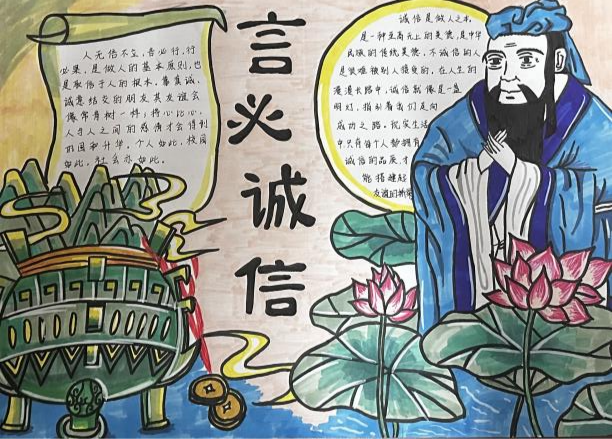 言必诚信
人无信不立,言必行,行
必果,是做人的基本原则,也
是取信于人的根本。靠真诚,
诚意结交的朋友其友谊会
像常青树一样,将心比心,
人与人之间的感情才会得到
巩固和升华,个人如此,校园
如此,社会亦如此。
诚信是做人之本,
是一种至高无上的美德,是中华
民族的传统美德,不诚信的人
是很难被别人接受的,在人生的
漫漫长路中,诚信就像是一盏
明灯,指引着我们走向
成功之路。现实生活
中只有每个人都拥有
诚信的品质,才
能搭建起
友谊的桥梁